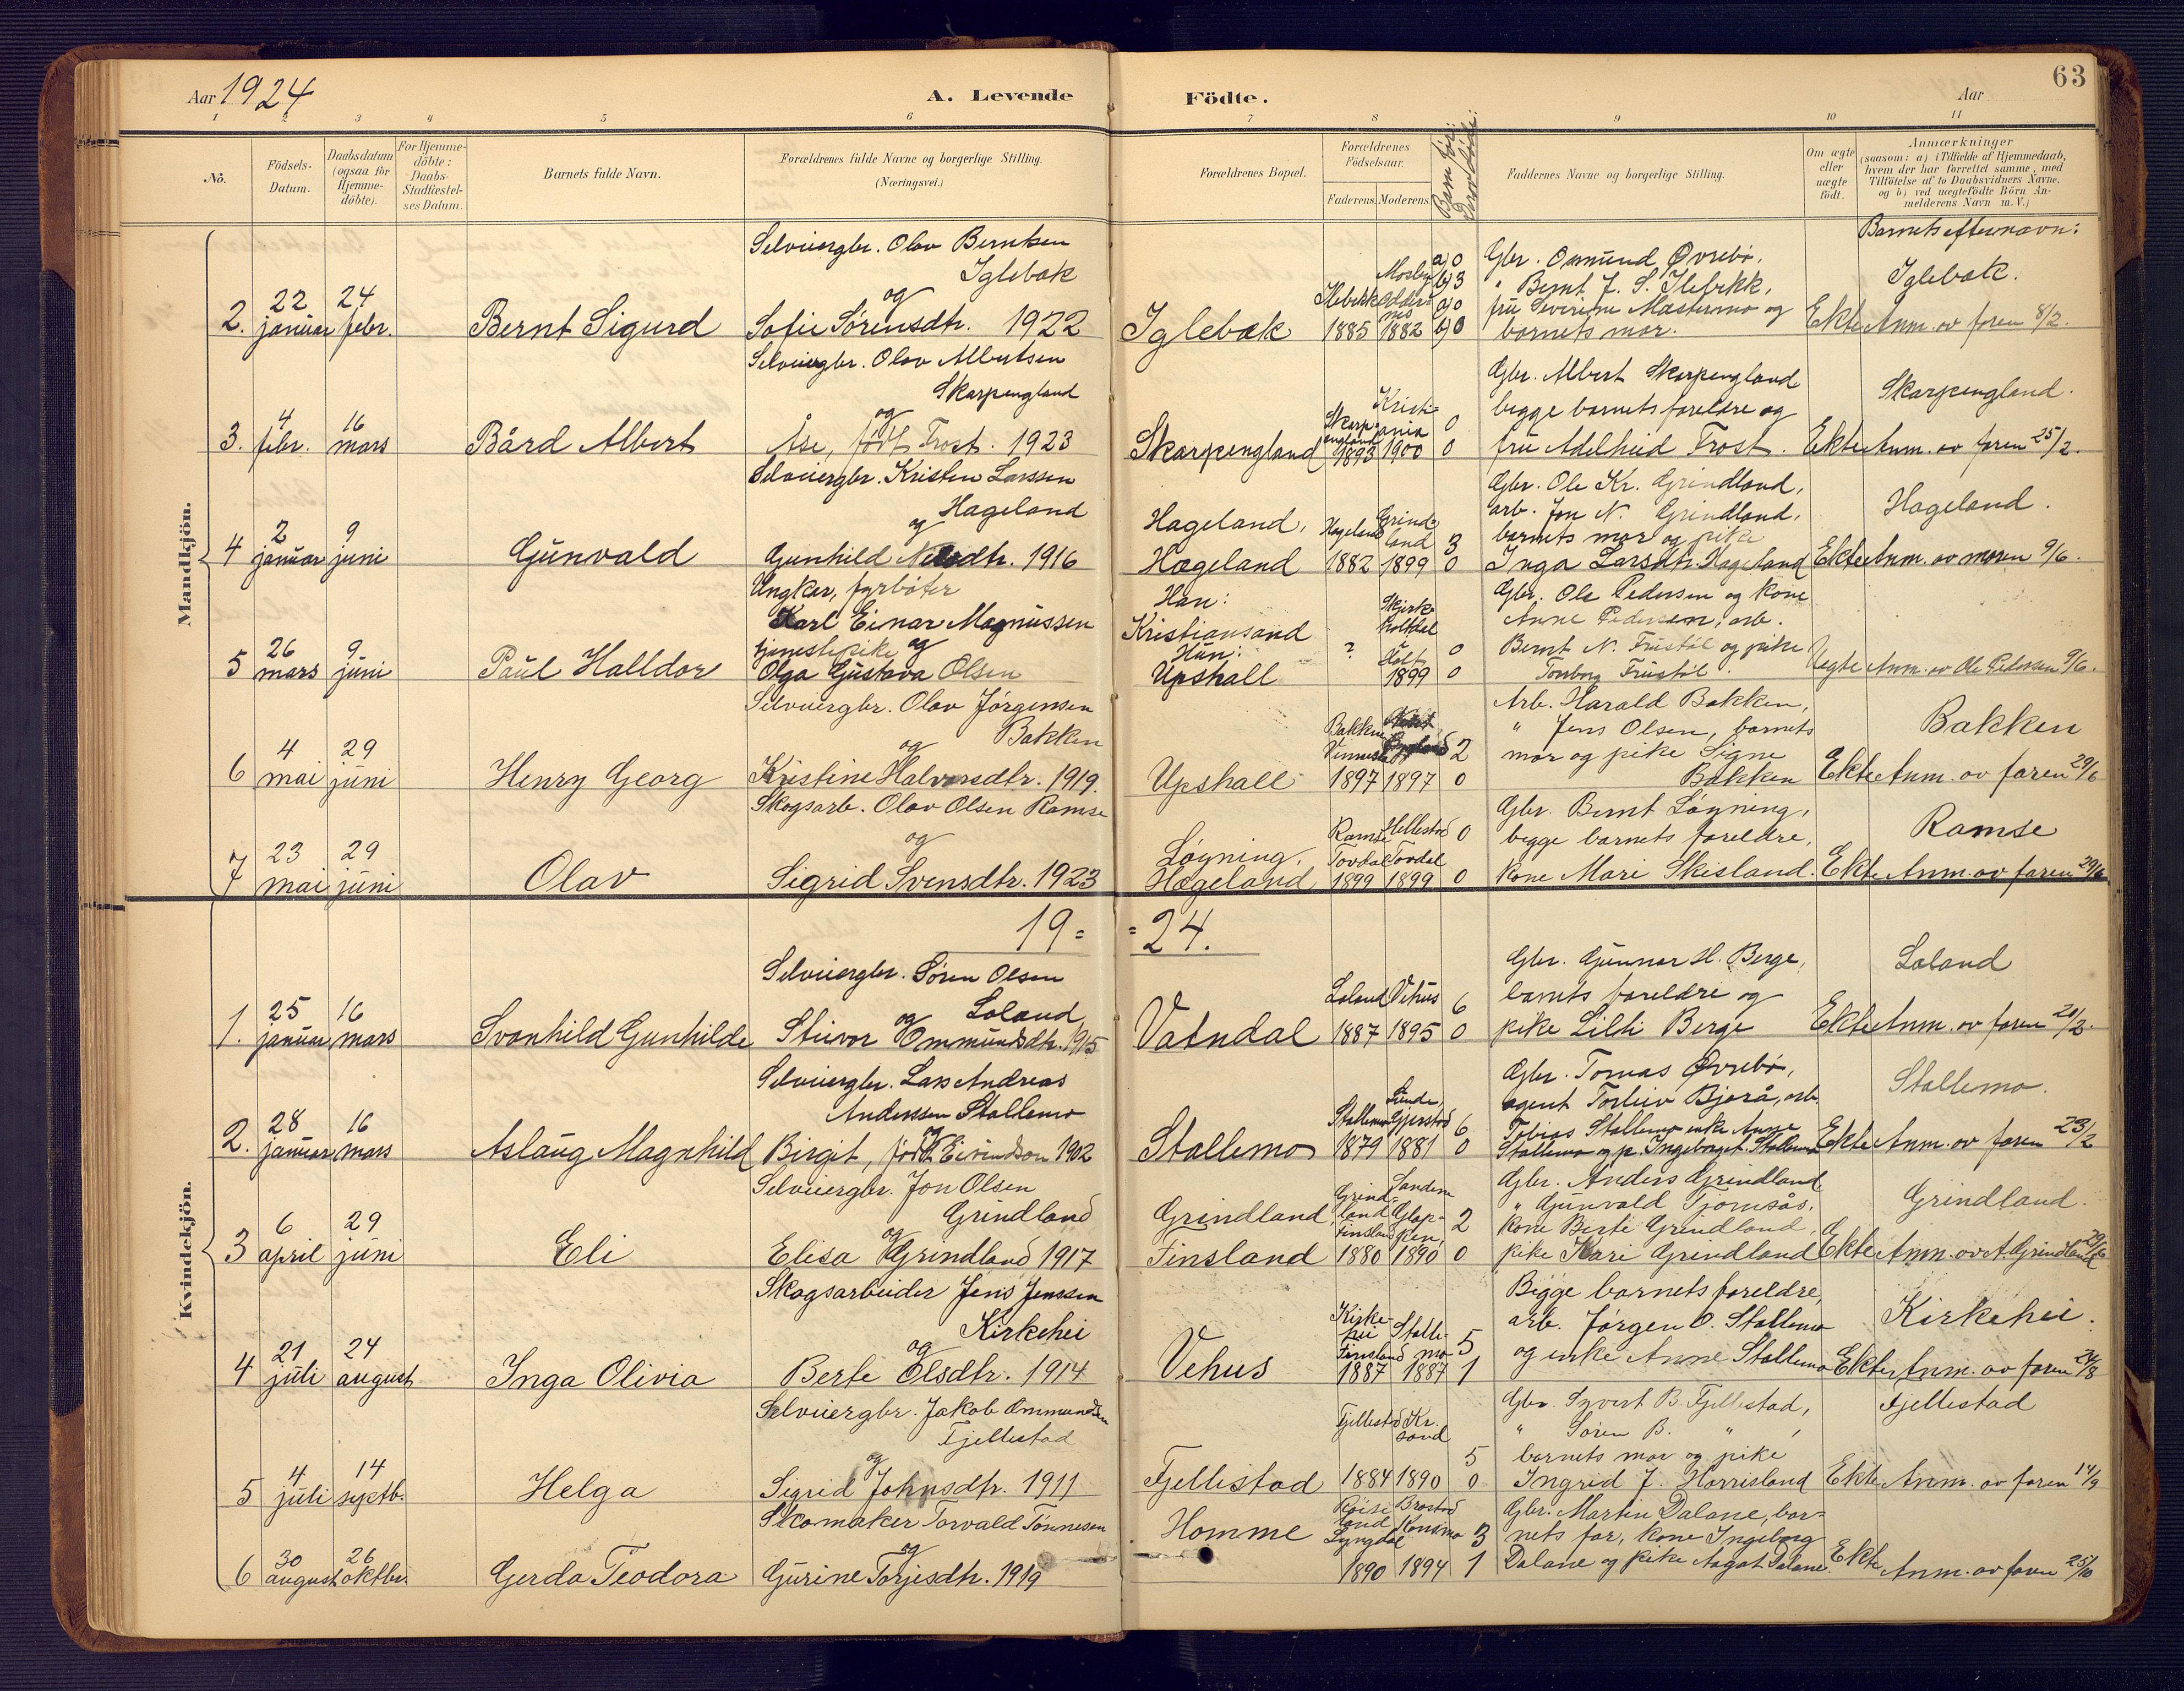 63
Aar 1924
A. Levende
Födte.
Aar
1 2 3 4 5 6 7 8 9 10 11
No.
Födsels-Datum.
Daabsdatum (ogsaa for Hjemme-döbte).
For Hjemme-döbte: Daabs-Stadfæstel-ses Datum.
Barnets fulde Navn.
Forældrenes fulde Navne og borgerlige Stilling.
(Næringsvei.)
Forældrenes Bopæl.
Forældrenes Födselsaar.
Faderens. Moderens.
Barn för:
Derav döde:
Faddernes Navne og borgerlige Stilling.
Om ægte eller uægte födt.
Anmærkninger
(saasom: a) i Tilfælde af Hjemmedaab, hvem der har forrettet samme, med Tilföielse af to Daabsvidners Navne, og b) ved uægtefödte Börn An-melderens Navn m. V.)
Barnets efternavn:
Mandkjön.
Selveiergbr. Olav Berntsen
Iglebæk
og
2. 22 januar 24 febr. Bernt Sigurd Sofie Sörensdtr. 1922
Iglebæk
Ilebekk 1885 1882
a) 0
b) 3
a) 0
b) 0
Gbr. Osmund Øvrebø,
" Bernt J. S. Ilebekk,
fru Severine Mæstermo og
barnets mor.
Ekte
Iglebæk.
Anm. av faren 8/2.
Selveiergbr. Olav Albertsen
Skarpengland
og
3. 4 febr. 16 mars Bård Albert Åse, født Frost. 1923
Skarpengland
Skarpengland 1893
Kristiania 1900
0
0
Gbr. Albert Skarpengland
begge barnets foreldre og
fru Adelheid Frost.
Ekte
Skarpengland.
Anm. av faren 25/2.
Selveiergbr. Kristen Larssen
Hageland
og
4 2 januar 9 juni Gunvald Gunhild Nilsdtr. 1916
Hageland,
Hægeland
Hageland 1882
Grindland 1899
3
0
Gbr. Ole Kr. Grindland,
arb. Jon N. Grindland,
barnets mor og pike
Inga Larsdtr. Hageland
Ekte
Hageland.
Anm. av moren 9/6.
Ungkar, fyrbøter
Karl Einar Magnussen
tjenestepike og
5 26 mars 9 juni Paul Halldor Olga Gustava Olsen
Han:
Kristiansand
Hun:
Upshall
?
Holt 1899
0
0
Gbr. Ole Pedersen og kone
Anne Pedersen, arb.
Bernt N. Frustøl og pike
Tonborg Frustøl.
Uegte
Anm. av Ole Pedersen 9/6.
Selveiergbr. Olav Jørgensen
Bakken
og
6 4 mai 29 juni Henry Georg Kristine Halvorsdtr. 1919.
Upshall
Bakken Vennesla 1897 1897
2
0
Arb. Harald Bakken,
" Jens Olsen, barnets
mor og pike Signe
Bakken
Ekte
Bakken
Anm. av faren 29/6
Skogsarb. Olav Olsen Ramse
og
7 23 mai 29 juni Olav Sigrid Svensdtr. 1923
Løyning,
Hægeland
Ramse Tovdal 1899
Hillestad Tovdal 1899
0
0
Gbr. Bernt Løyning,
begge barnets foreldre,
kone Mari Skisland.
Ekte
Ramse
Anm. av faren 29/6
19= =24.
Kvindekjön.
Selveiergbr. Søren Olsen
Loland
og
1. 25 januar 16 mars Svanhild Gunhilde Stuvor Ommundsdtr. 1915
Vatndal
Loland 1887
Vehus 1895
6
0
Gbr. Gunnar H. Berge,
barnets foreldre og
pike Lilli Berge
Ekte
Loland
Anm. av faren 20/2.
Selveiergbr. Lars Andreas
Anderssen Stallemo
og
2. 28 januar 16 mars Aslaug Magnhild Birgit, født Eivindson 1902
Stallemo
Stallemo 1879
Lunde, Gjerstad 1881
6
0
Gbr. Tomas Øvrebø,
agent Torleiv Bjorå, arb.
Tobias Stallemo enke Anne
Stallemo og p. Ingeborg Stallemo
Ekte
Stallemo.
Anm. av faren 23/2
Selveiergbr. Jon Olsen
Grindland
og
3 6 april 29 juni Eli Elisa Grindland 1917
Grindland,
Finsland
Grindland Finsland 1880
1890
2
0
Gbr. Anders Grindland
" Gunvald Tjomsås,
kone Berte Grindland,
pike Kari Grindland
Ekte
Grindland.
Anm. av A. Grindland 29/6
Skogsarbeider Jens Jenssen
Kirkehei
og
4 21 juli 24 august Inga Olivia Berte Olsdtr. 1914
Vehus
Kirkehei Finsland 1887
Stallemo 1887
5
1
Begge barnets foreldre,
arb. Jørgen O. Stallemo
og enke Anne Stallemo
Ekte
Kirkehei.
Anm. av faren 24/8
Selveiergbr. Jakob Ommundsen
Fjellestad
og
5 4 juli 14 septb. Helga Sigrid Johnsdtr. 1911
Fjellestad
Fjellestad 1884
Kr. sand 1890
5
0
Gbr. Syvert B. Fjellestad,
" Søren B. " ,
barnets mor og pike
Ingrid J. Horrisland
Ekte
Fjellestad
Anm. av faren 14/9
Skomaker Torvald Tønnesen
og
6 30 august 26 oktbr. Gerda Teodora Gurine Torjesdtr. 1919
Homme
Røiseland Lyngdal 1890
Brastad Konsmo 1894
3
1
Gbr. Martin Dalane, bar-
nets far, kone Ingeborg
Dalane og pike Aagot Dalane.
Ekte
Anm. av faren 25/10